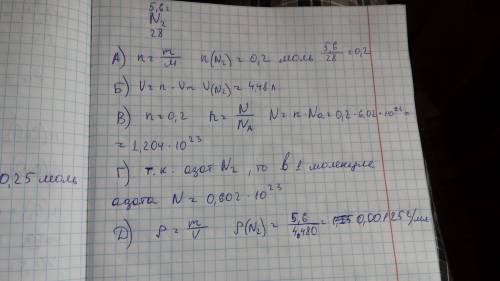 5,6г
N₂
28
А) n = m/M   n(N₂) = 0,2 моль   5,6/28 = 0,2
Б) V = n · Vm   V(N₂) = 4,48 л
В) n = 0,2   n = N/N_A   N = n · Na = 0,2 · 6,02 · 10²³ =
= 1,204 · 10²³
0,25 моль
Г) т.к. азот N₂, то в 1 молекуле
азота N = 0,602 · 10²³
Д) ρ = m/V   ρ(N₂) = 5,6/4,480 = 0,00125 г/мл